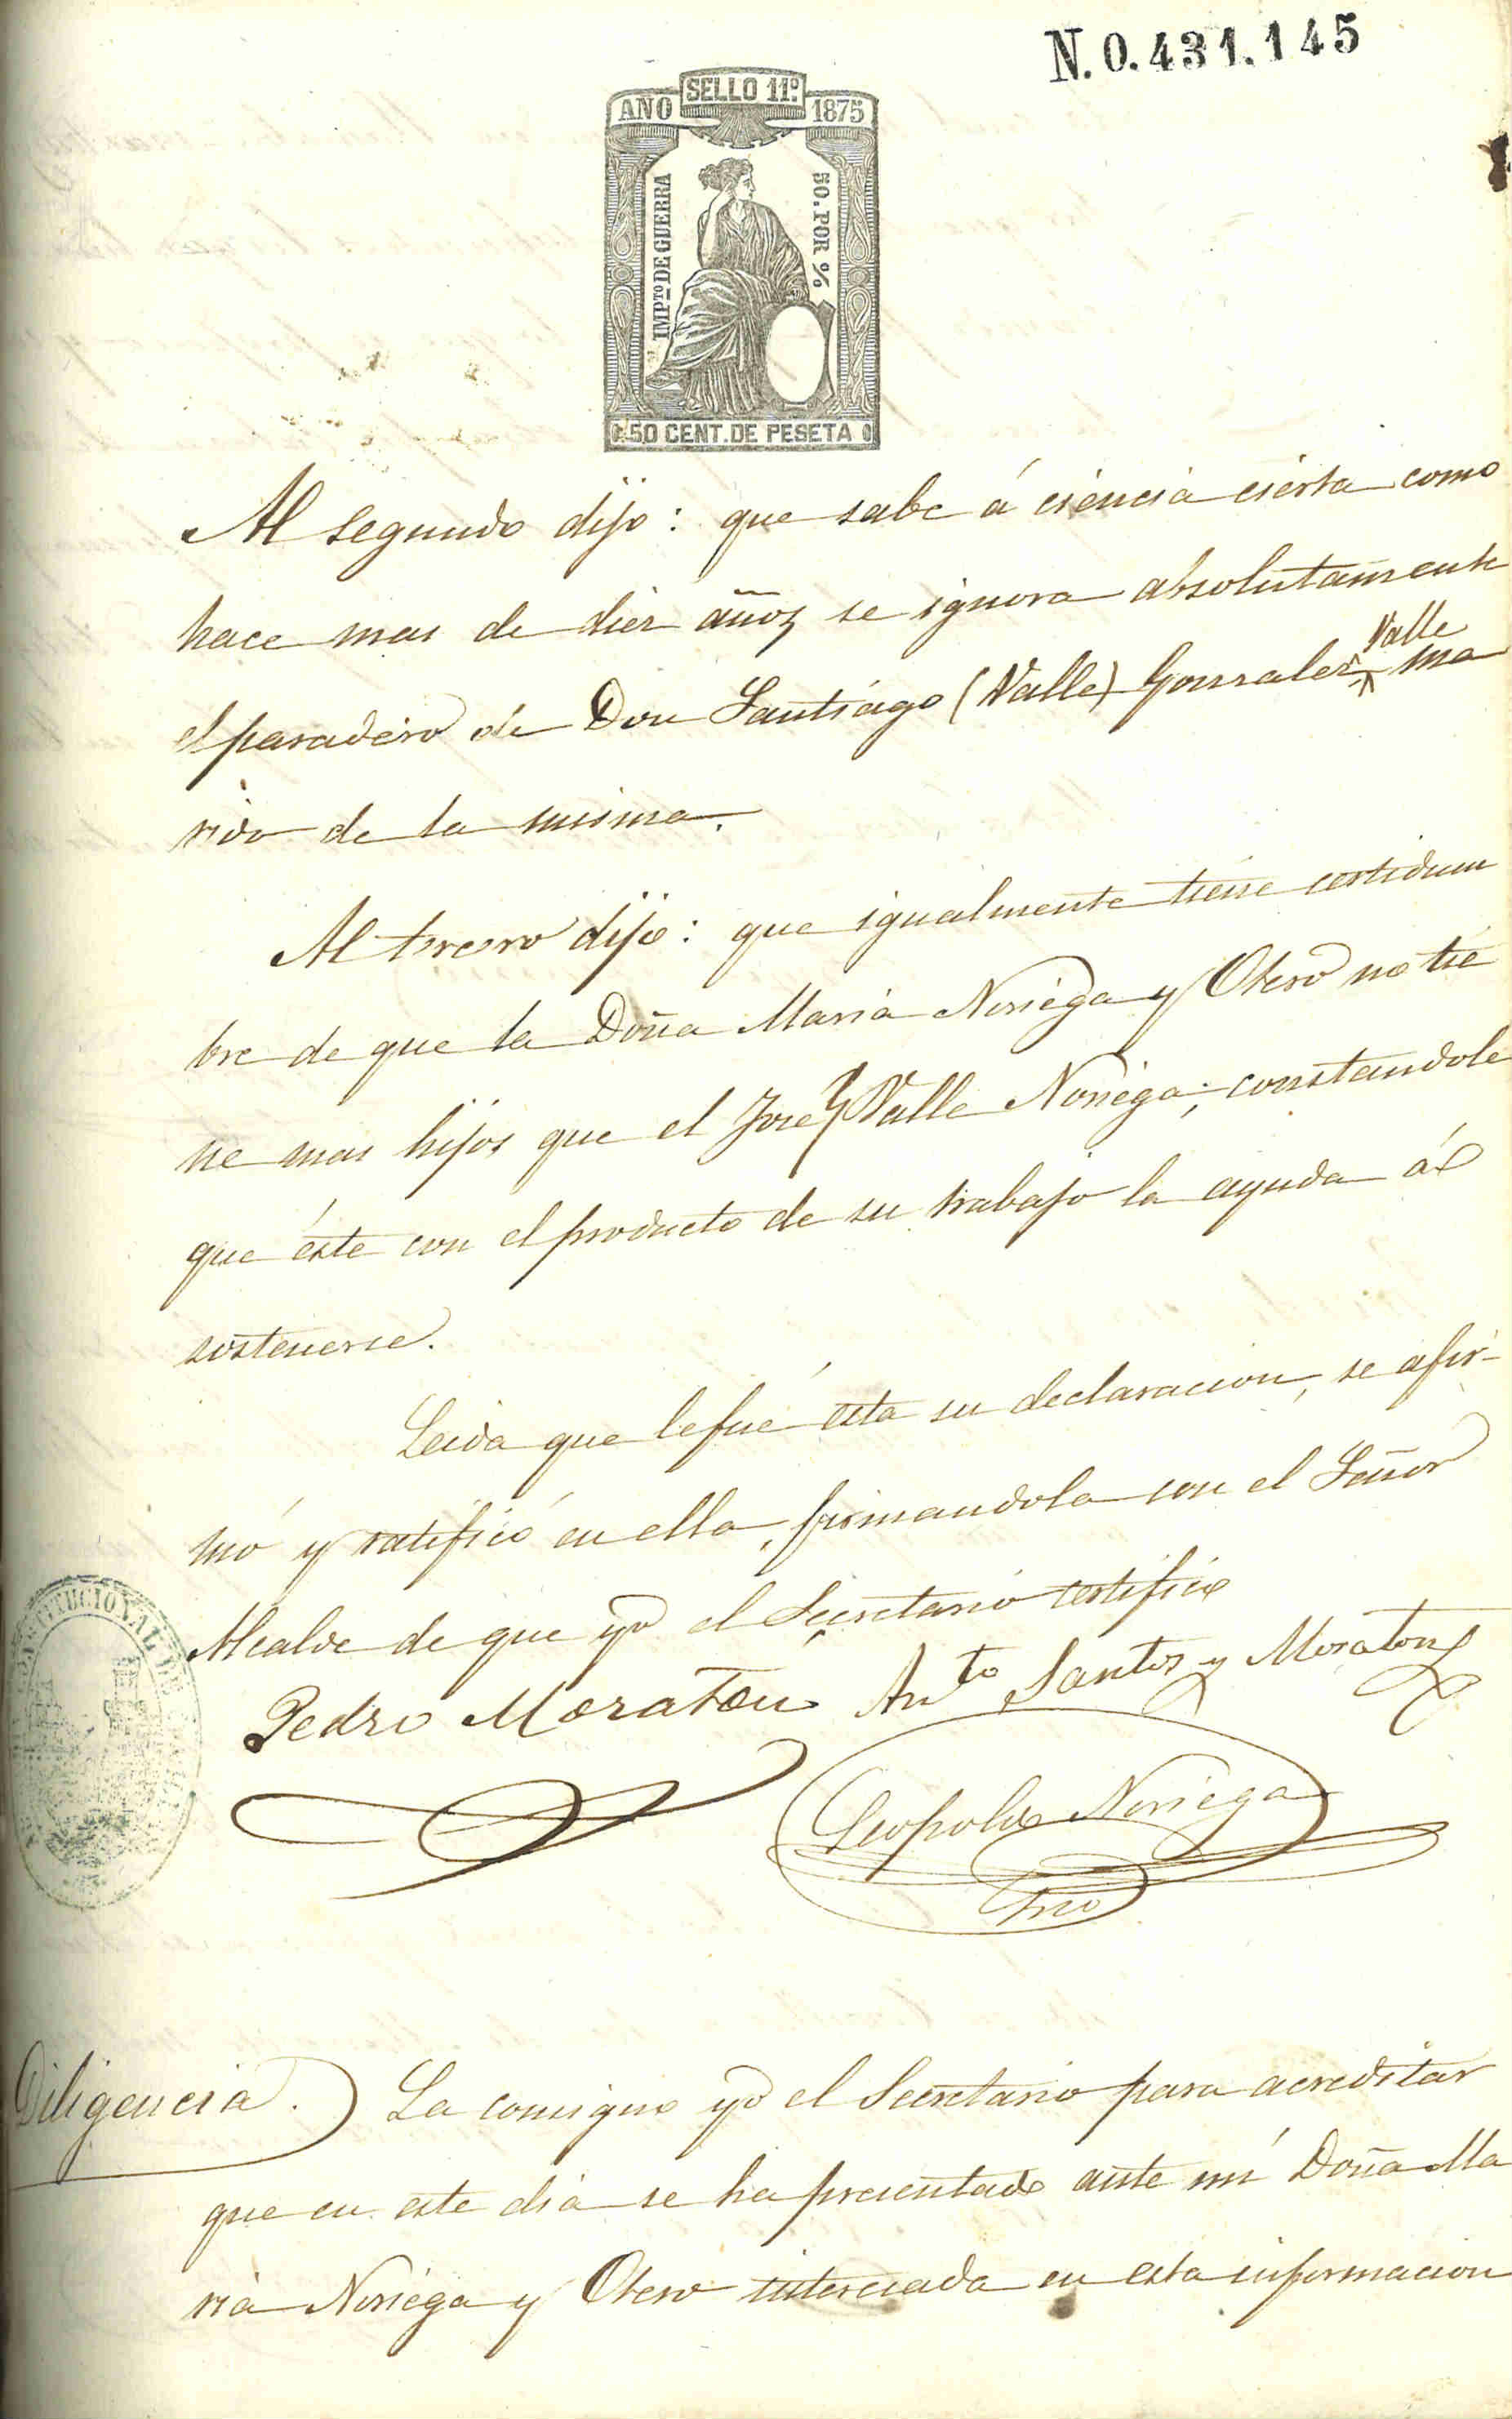 N.0.431.145
SELLO 11º
AÑO 1875
IMPTO DE GUERRA
50. POR %
50 CENT. DE PESETA
Al segundo dijo: que sabe á ciencia cierta como
hace mas de diez años se ignora absolutamente
el paradero de Don Santiago (Valle) Gonzalez Valle ma
rido de la misma.
Al tercero dijo: que igualmente tiene certidum
bre de que la Doña Maria Noriega y Otero no tie
ne mas hijos que el José Valle Noriega; constandole
que éste con el producto de su trabajo la ayuda á
sostenerse.
Leida que le fué esta su declaracion, se afir-
mó y ratificó en ella, firmandola con el Señor
Alcalde de que yo el Secretario certifico
Pedro Moraton Anto Santos y Moraton
Leopoldo Noriega
Srio
CONSTITUCIONAL DE
Diligencia.) La consigno yo el Secretario para acreditar
que en este dia se ha presentado ante mí Doña Ma
ria Noriega y Otero interesada en esta informacion